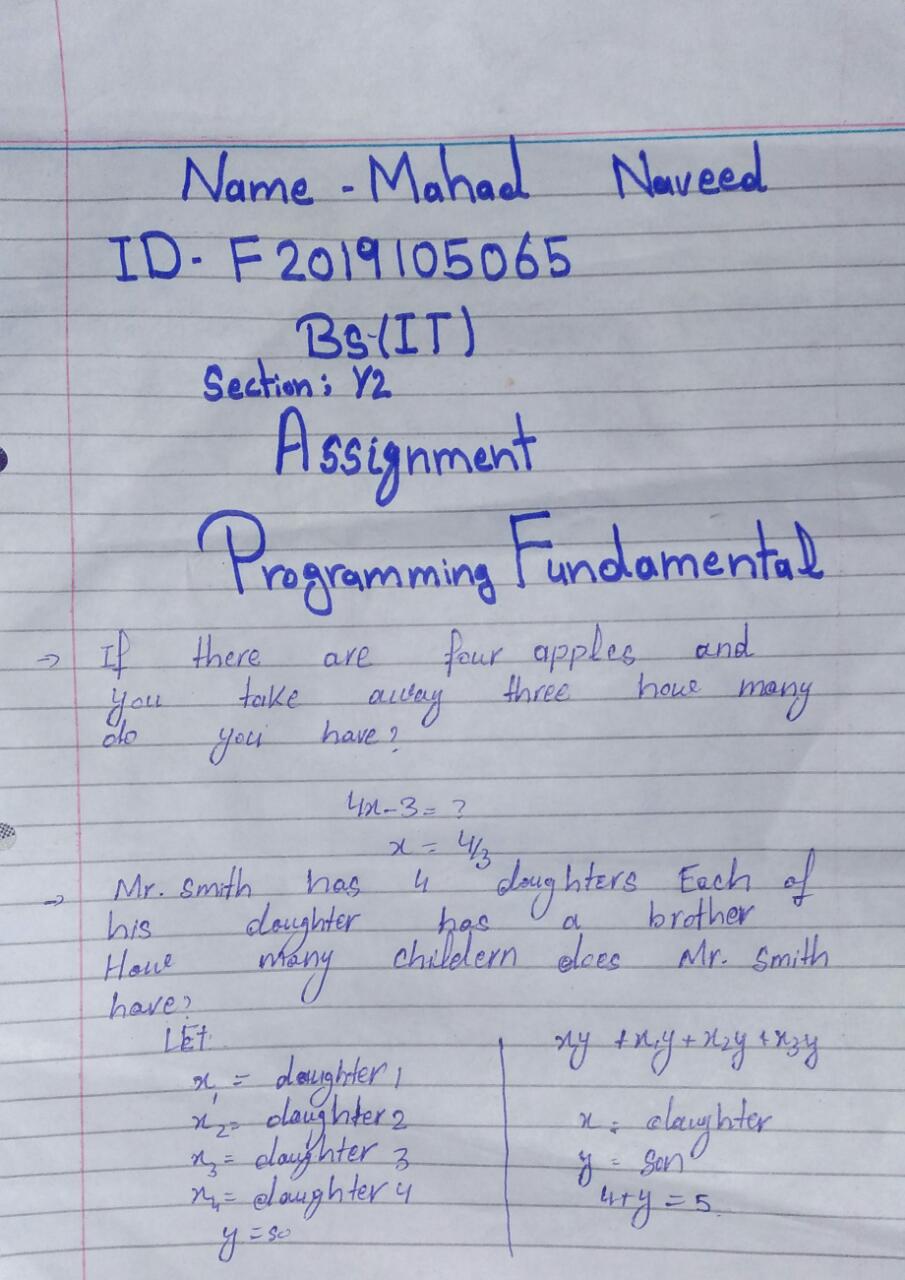 Name - Mahad Naveed
ID- F2019105065
Bs(IT)
Section: Y2
Assignment
Programming Fundamental
→ If there are four apples and
you take away three how many
do you have?
4x-3= ?
x = 4/3
→ Mr. Smith has 4 daughters Each of
his daughter has a brother
How many childern does Mr. Smith
have?
LEt
x₁ = daughter 1
x₂= daughter 2
x₃= daughter 3
x₄= daughter 4
y = so
xy + x₁y + x₂y + x₃y
x = daughter
y = Son
4+y = 5